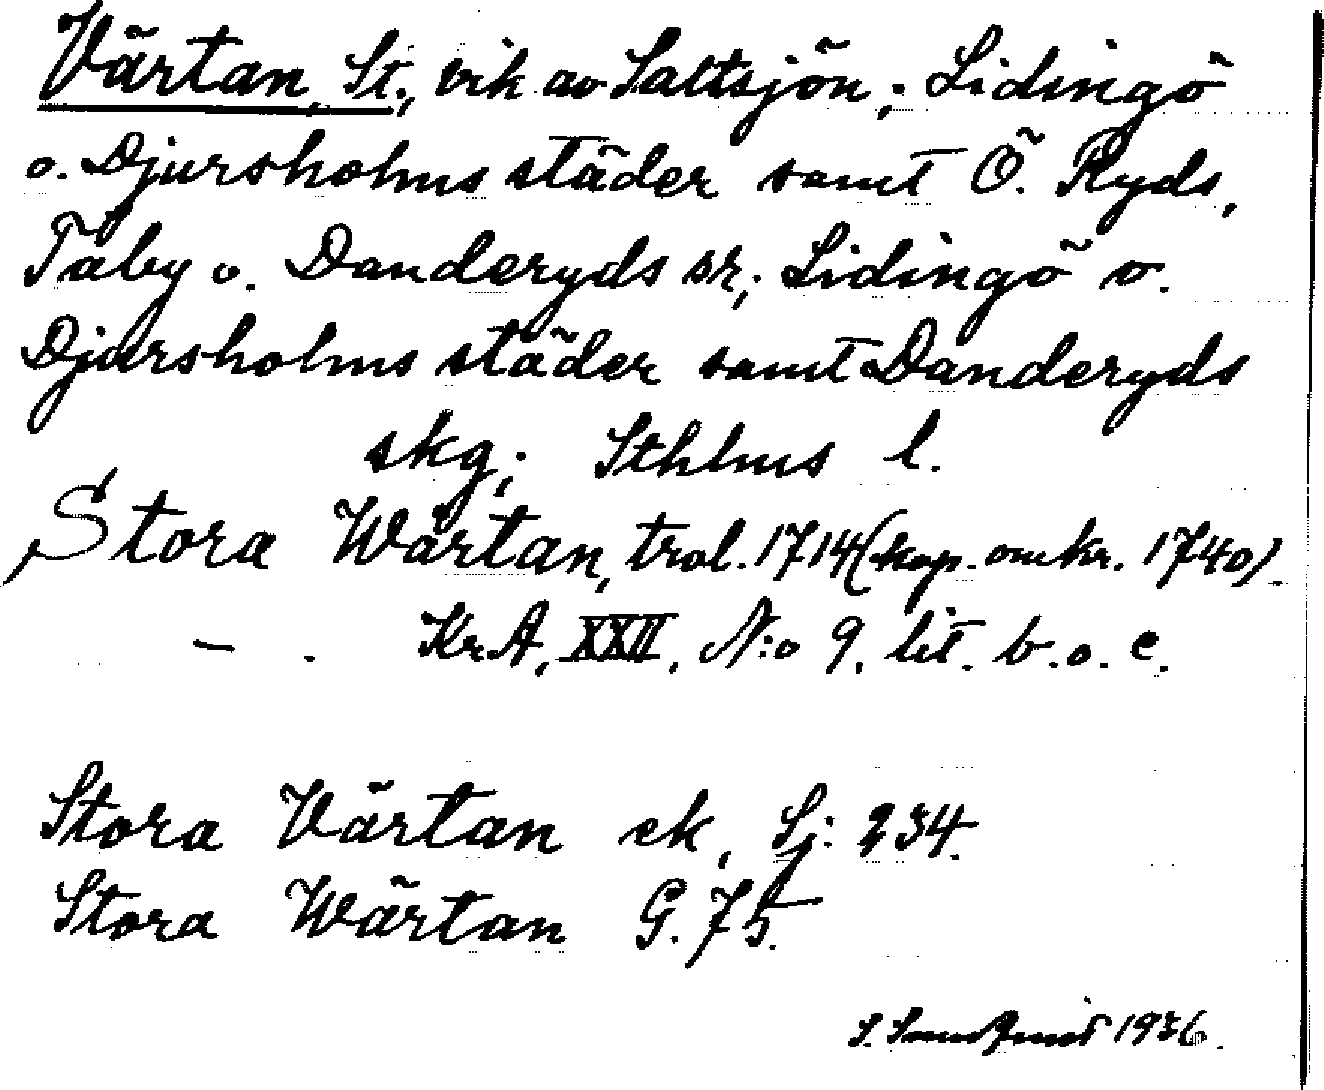 Värtan, St., vik av Saltsjön; Lidingö
o. Djursholms städer samt Ö. Ryds,
Täby o. Danderyds sr; Lidingö o.
Djursholms städer samt Danderyds
skg; Sthlms l.
Stora Wärtan, trol. 1714 (kop. omkr. 1740).
— . KrA, XXII, N:o 9, lit. b. o. c.
Stora Värtan ek, Sj: 234.
Stora Wärtan G. 75.
1936.